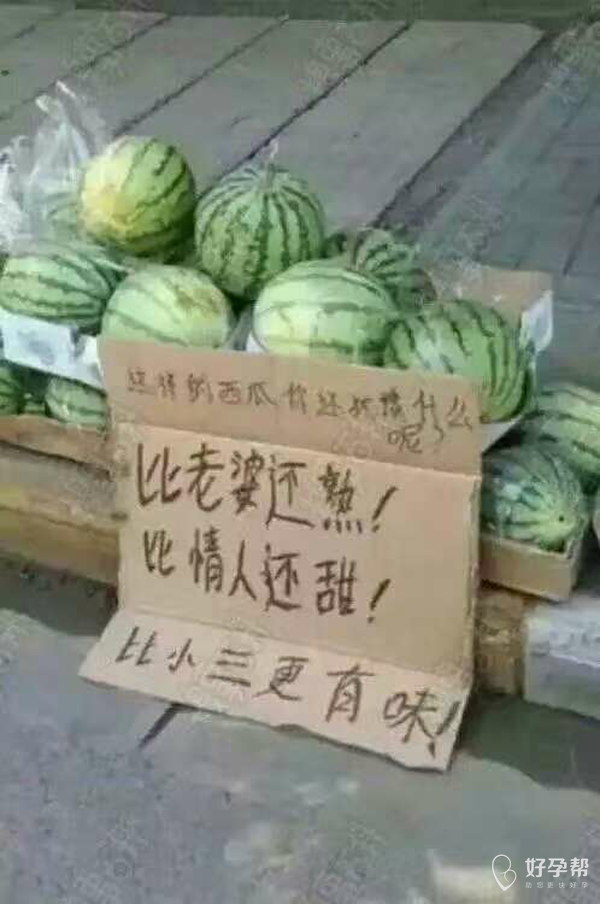 这样的西瓜你还犹豫什么
呢?
比老婆还熟!
比情人还甜!
比小三更有味!
好孕帮
助您更快好孕